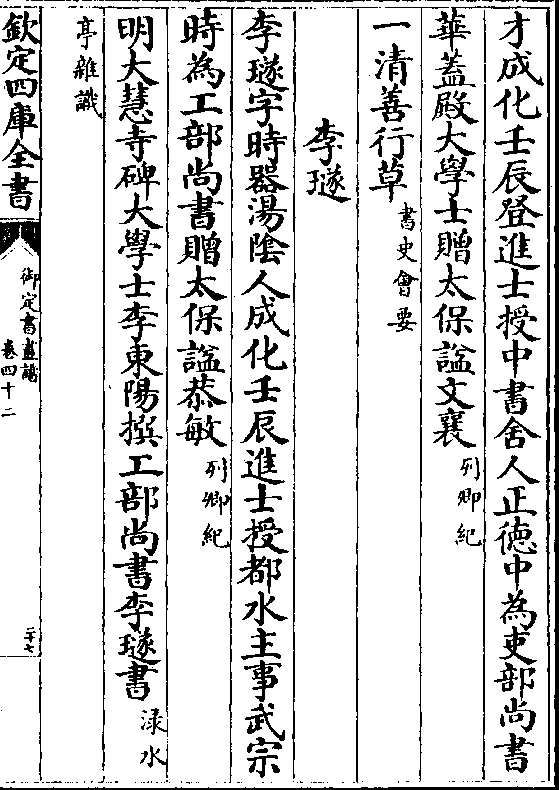 才成化壬辰登進士授中書舍人正徳中為吏部尚書
華蓋殿大學士贈太保諡文襄列卿紀
一清善行草書史會要
李璲
李璲字時器湯陰人成化壬辰進士授都水主事武宗
時為工部尚書贈太保諡恭敏列卿紀
明大慧寺碑大學士李東陽撰工部尚書李璲書渌水
亭雜識
欽定四庫全書
御定書畫譜
卷四十二
二十七